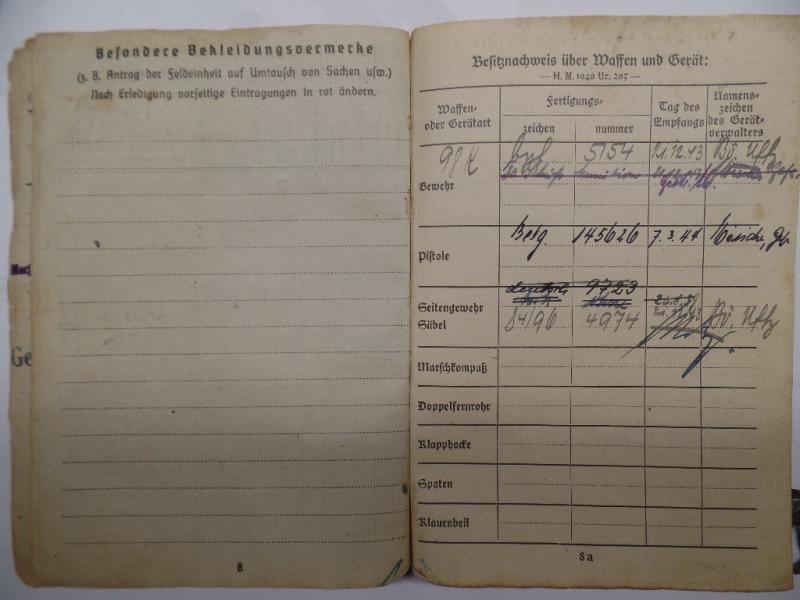 Besondere Bekleidungsvermerke
(z. B. Antrag der Feldeinheit auf Umtausch von Sachen usw.)
Nach Erledigung vorseitige Eintragungen in rot ändern.
8
Besitznachweis über Waffen und Gerät:
— H. M. 1940 Nr. 205 —
Waffen- oder Gerätart
Fertigungs-
zeichen
nummer
Tag des Empfangs
Namens- zeichen des Gerät- verwalters
98 K
Gewehr
5154
21.12.43
Uffz
Pistole
Belg.
145626
7.3.44
Seitengewehr
Säbel
9723
84/96
4974
Uffz
Marschkompaß
Doppelfernrohr
Klapphacke
Spaten
Klauenbeil
8a